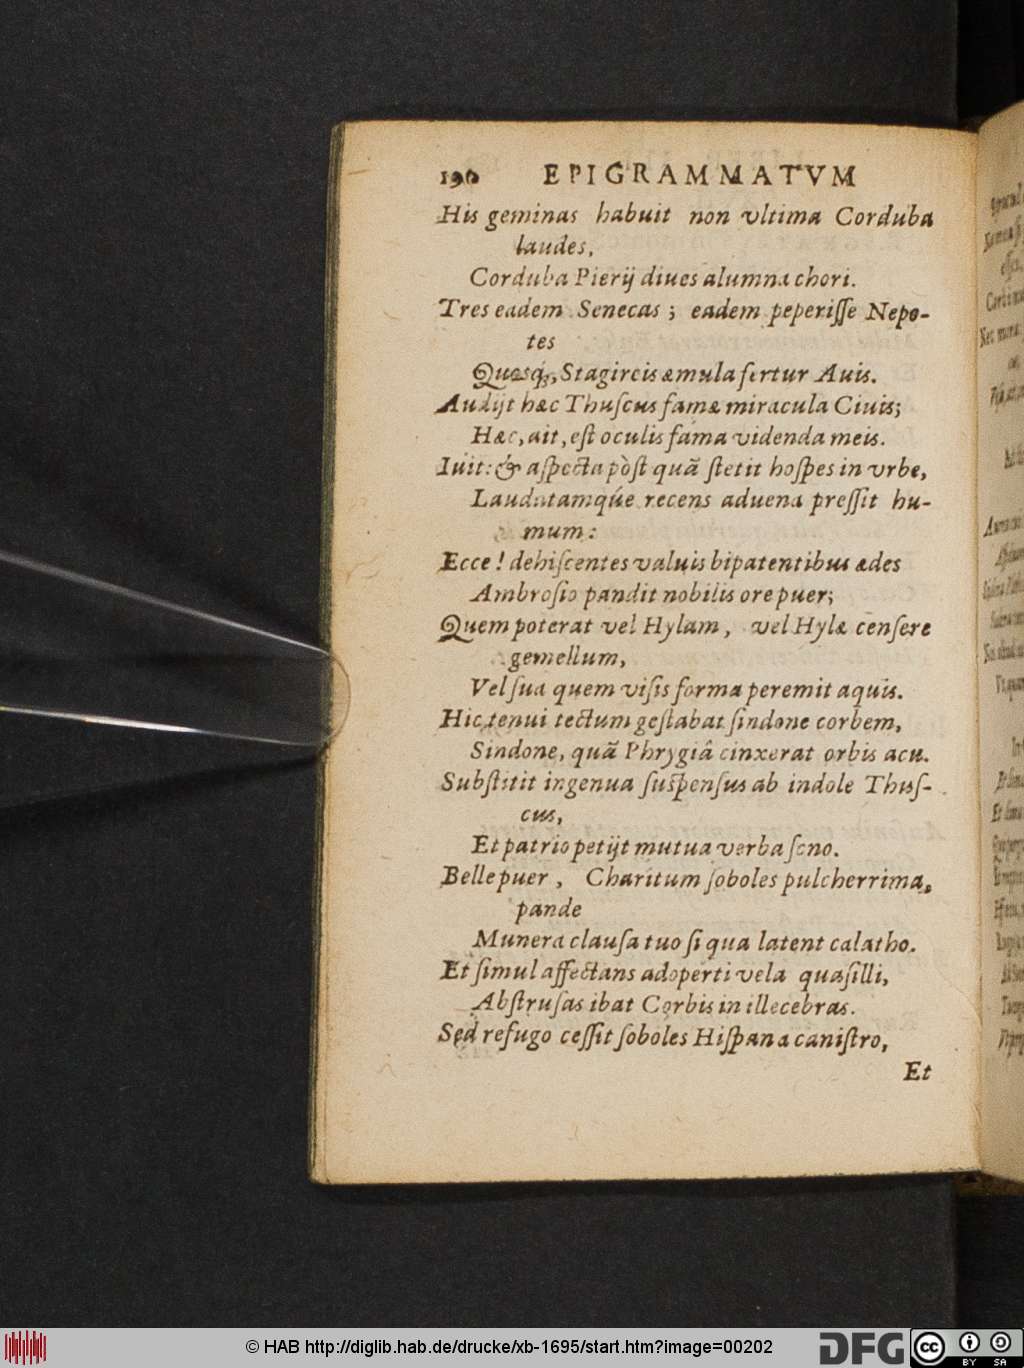 190 EPIGRAMMATVM
His geminas habuit non vltima Corduba
laudes,
Corduba Pierij diues alumna chori.
Tres eadem Senecas; eadem peperiſſe Nepo-
tes
Quosq́;, Stagireis æmula fertur Auis.
Audijt hæc Thuſcus famæ miracula Ciuis;
Hæc, ait, eſt oculis fama videnda meis.
Iuit: & aſpecta pòſt quã ſtetit hoſpes in vrbe,
Laudatamq́ue recens aduena preſſit hu-
mum:
Ecce! dehiſcentes valuis bipatentibus ædes
Ambroſio pandit nobilis ore puer;
Quem poterat vel Hylam, vel Hylæ cenſere
gemellum,
Vel ſua quem viſis forma peremit aquis.
Hic tenui tectum geſtabat ſindone corbem,
Sindone, quã Phrygiâ cinxerat orbis acu.
Subſtitit ingenua ſuſpenſus ab indole Thuſ-
cus,
Et patrio petijt mutua verba ſono.
Belle puer, Charitum ſoboles pulcherrima,
pande
Munera clauſa tuo ſi qua latent calatho.
Et ſimul affectans adoperti vela quaſilli,
Abſtruſas ibat Corbis in illecebras.
Sed refugo ceſſit ſoboles Hiſpana caniſtro,
Et
© HAB http://diglib.hab.de/drucke/xb-1695/start.htm?image=00202
DFG
cc BY SA